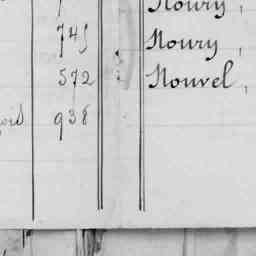 Noury,
745 Noury,
572 Nouvel,
938